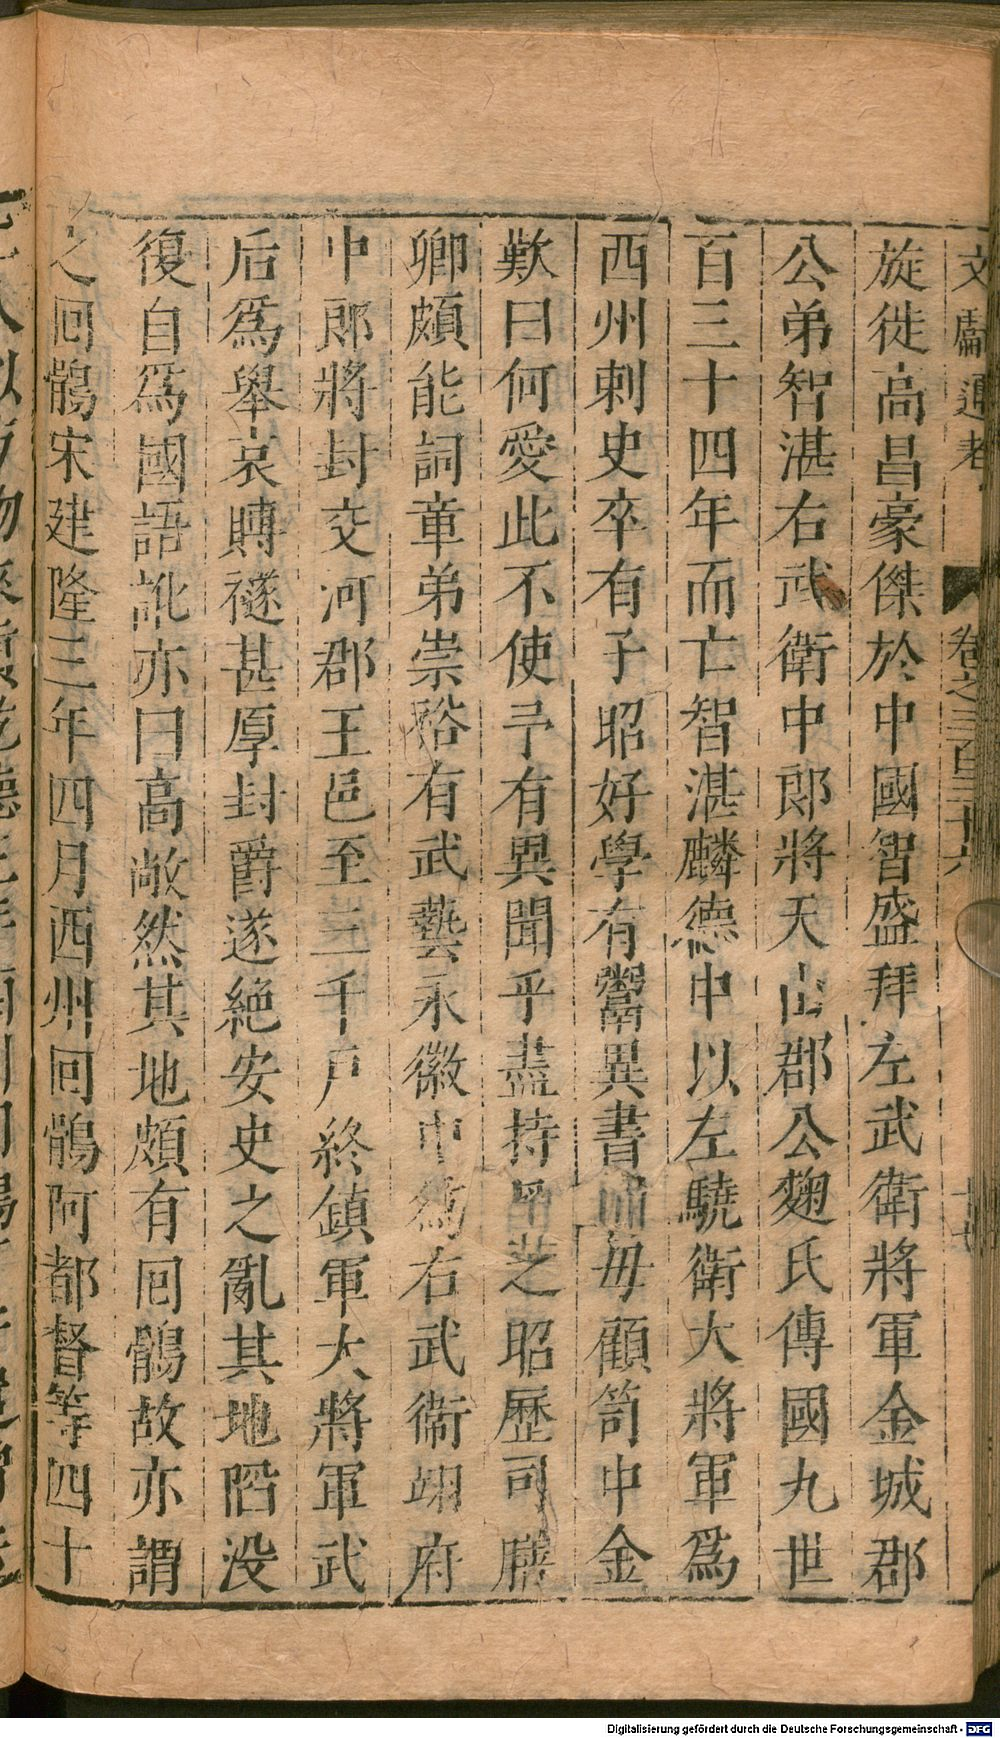 文獻通考 卷之三百三十六 十七
旋徙高昌豪傑於中國智盛拜左武衛將軍金城郡
公弟智湛右武衛中郎將天山郡公麴氏傳國九世
百三十四年而亡智湛麟德中以左驍衛大將軍爲
西州刺史卒有子昭好學有鬻異書者母顧笥中金
歎曰何愛此不使予有異聞乎盡持易之昭歷司膳
卿頗能詞章弟崇裕有武藝永徽中爲右武衛翊府
中郎將封交河郡王邑至三千戶終鎮軍大將軍武
后爲舉哀賻襚甚厚封爵遂絕安史之亂其地陷没
復自爲國語訛亦曰高敞然其地頗有回鶻故亦謂
之回鶻宋建隆三年四月西州回鶻阿都督等四十
Digitalisierung gefördert durch die Deutsche Forschungsgemeinschaft - DFG